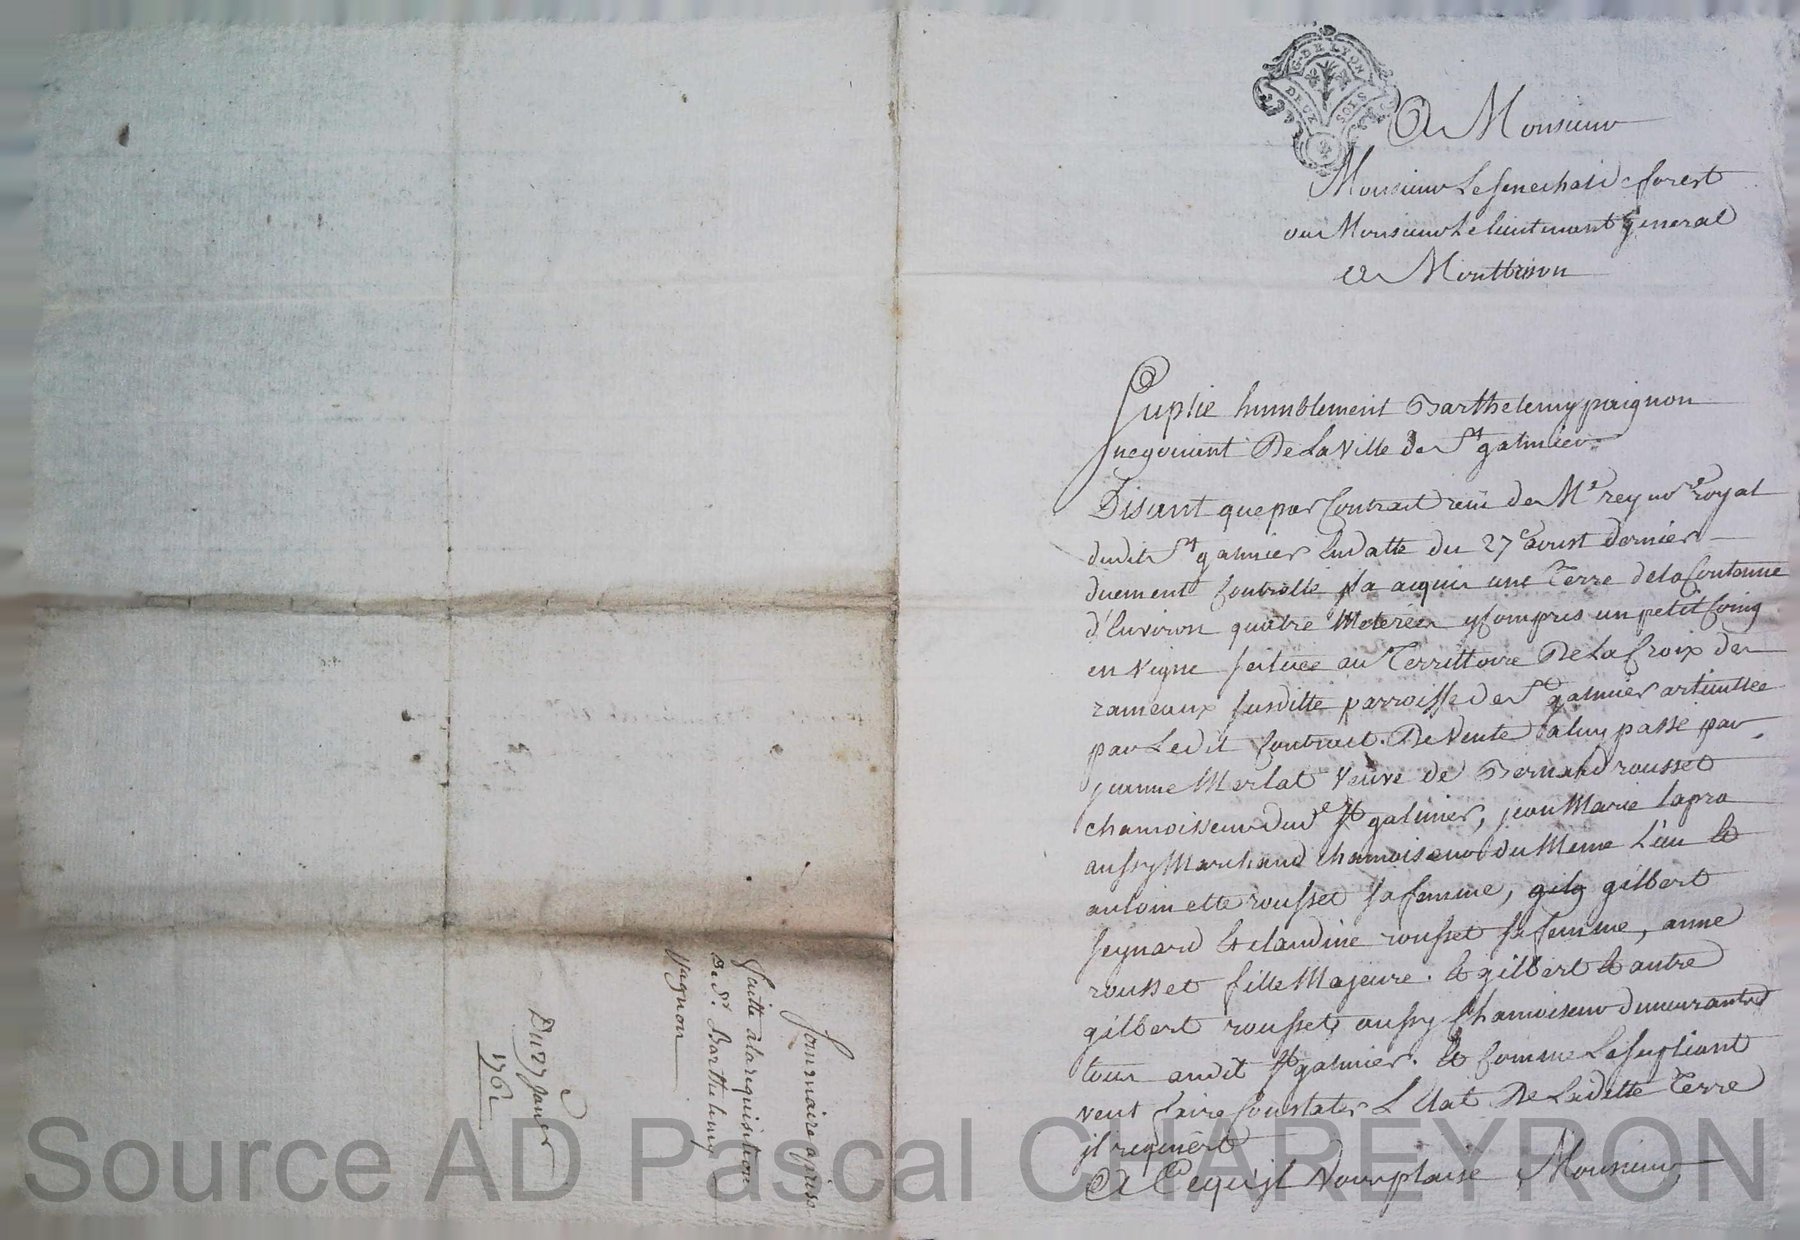 G. DE LYON
DEUX SOLS
A Monsieur
Monsieur Le senechal de forest
ou Monsieur Le lieutenant general
a Montbrison
Suplie humblement Barthelemy paignon
negociant De La Ville de St galmier
Disant que par Contract reçu de Me rey nre royal
dudit St galmier En datte du 27e aoust dernier
duement Controllé il a acquis une Terre de la Contenue
d'Environ quatre Meterées y Compris un petit Coing
en vigne scituée au Territtoire De La Croix des
rameaux susditte parroisse de St galmier articullée
par Ledit Contract De Vente a luy passé par
jeanne Merlat Veuve de Bernard rousset
chamoisseur dud St galmier, jean Marie lapra
aussy Marchand chamoiseur du Meme Lieu Et
antoinette rousset sa femme, gilg gilbert
seynard Et claudine rousset sa femme, anne
rousset fille Majeure. Et gilbert Et autre
gilbert rousset aussy Chamoiseur demeurants
tous audit St galmier. Et Comme Le supliant
veut faire Constater L'Etat De Laditte Terre
il requiert
A Ce qu'il Vous plaise Monsieur
Sommaire aprise
Faitte a la requisition
De Sr. Barthelemy
Pagnon
Du 27 Janer
1762
Source AD Pascal CHAREYRON